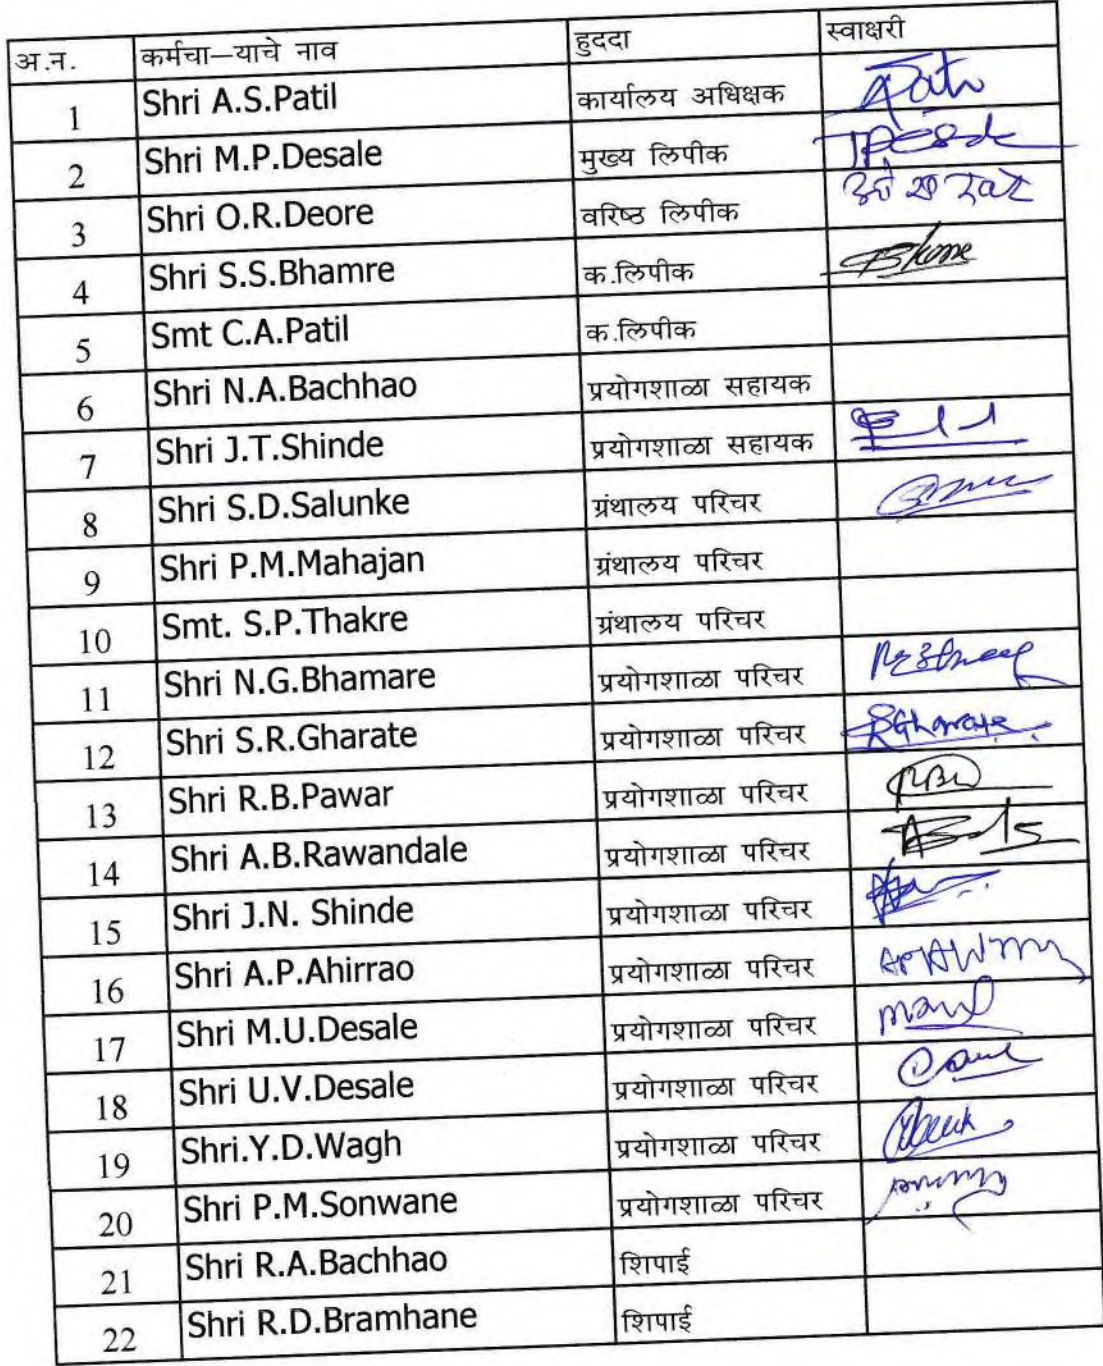 अ.न. कर्मचा–याचे नाव हुददा स्वाक्षरी
1 Shri A.S.Patil कार्यालय अधिक्षक
2 Shri M.P.Desale मुख्य लिपीक
3 Shri O.R.Deore वरिष्ठ लिपीक
4 Shri S.S.Bhamre क.लिपीक
5 Smt C.A.Patil क.लिपीक
6 Shri N.A.Bachhao प्रयोगशाळा सहायक
7 Shri J.T.Shinde प्रयोगशाळा सहायक
8 Shri S.D.Salunke ग्रंथालय परिचर
9 Shri P.M.Mahajan ग्रंथालय परिचर
10 Smt. S.P.Thakre ग्रंथालय परिचर
11 Shri N.G.Bhamare प्रयोगशाळा परिचर
12 Shri S.R.Gharate प्रयोगशाळा परिचर SGharate
13 Shri R.B.Pawar प्रयोगशाळा परिचर
14 Shri A.B.Rawandale प्रयोगशाळा परिचर
15 Shri J.N. Shinde प्रयोगशाळा परिचर
16 Shri A.P.Ahirrao प्रयोगशाळा परिचर
17 Shri M.U.Desale प्रयोगशाळा परिचर
18 Shri U.V.Desale प्रयोगशाळा परिचर
19 Shri.Y.D.Wagh प्रयोगशाळा परिचर
20 Shri P.M.Sonwane प्रयोगशाळा परिचर
21 Shri R.A.Bachhao शिपाई
22 Shri R.D.Bramhane शिपाई